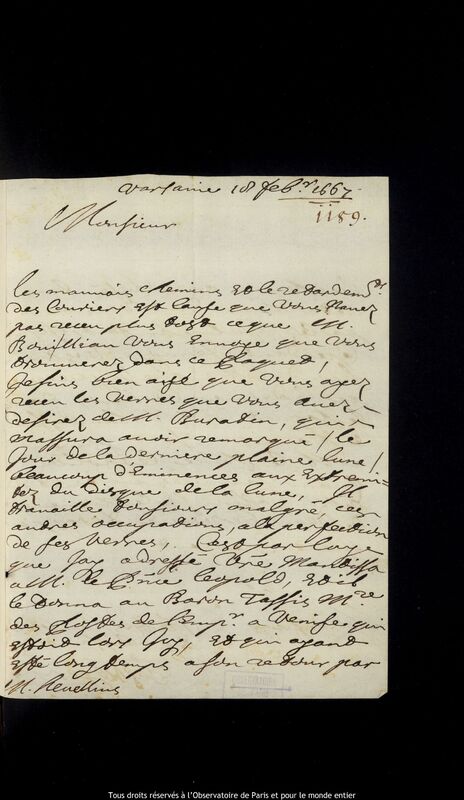 Varsavie 18 feb.r 1667.
1189.
Monsieur
les mauvais chemins et le retardem.t
des Couriers est cause que vous n'avez
pas receu plus tost ce que M.
Bouilliau vous envoye que vous
trouverez dans ce Paquet,
Je suis bien aise que vous ayez
receu les verres que vous avez
desirez de M. Buratin, qui
m'assura avoir remarqué, le
Jour de la derniere plaine lune,
beaucoup d'Eminences aux Extremi-
tez du disque de la lune, Il
travaille tousiours malgré ces
autres occupations a la perfection
de ses verres, C'est par luy
que J'ay adressé
a M. le P.nce Leopold, et
le donna au Baron Tassis M.re
des Postes de l'Emp.r a Venise qui
estoit lors Icy, et qui ayant
esté long temps a son retour par
M. Hevellius
OBSERVATOIRE
Tous droits réservés à l'Observatoire de Paris et pour le monde entier